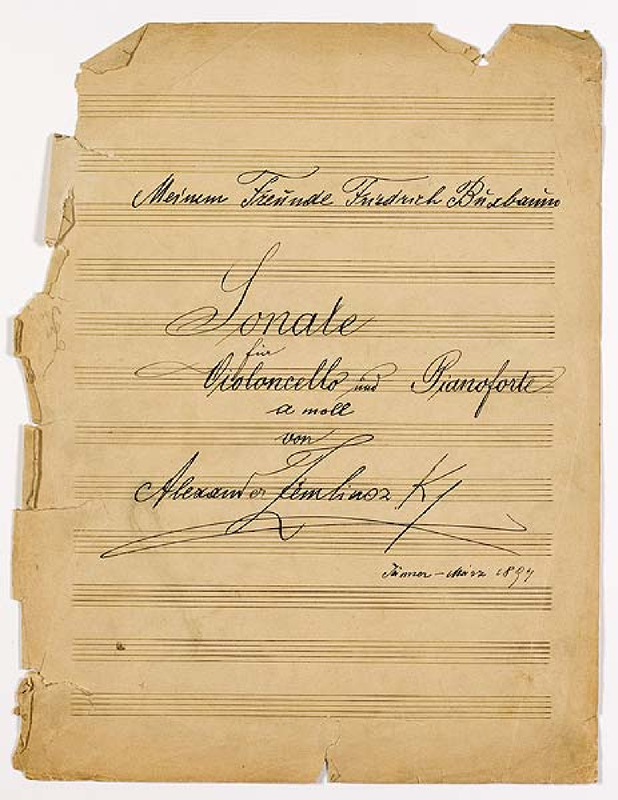 Meinem Freunde Friedrich Buxbaum
Sonate
für
Violoncello und Pianoforte
a moll
von
Alexander Zemlinszky
Jänner – März 1894